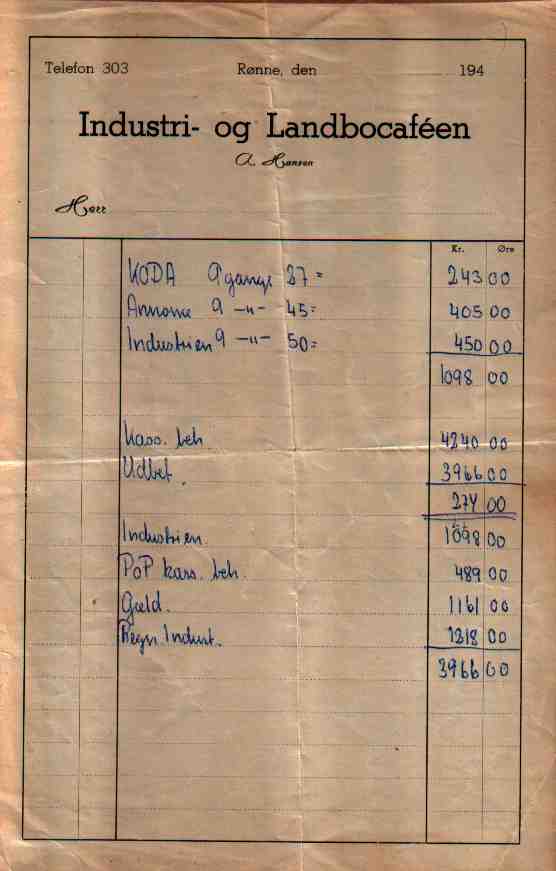 Telefon 303 Rønne, den 194
Industri- og Landbocaféen
A. Hansen
Herr
Kr. Øre
KODA 9 gange 27 = 243 00
Annonce 9 -"- 45= 405 00
Industrien 9 -"- 50= 450 00
1098 00
Kass. beh. 4240 00
Udbet. 3966 00
274 00
Industrien. 1098 00
PoP kass. beh. 489 00
Gæld. 1161 00
Regn. Indust. 1318 00
3966 00